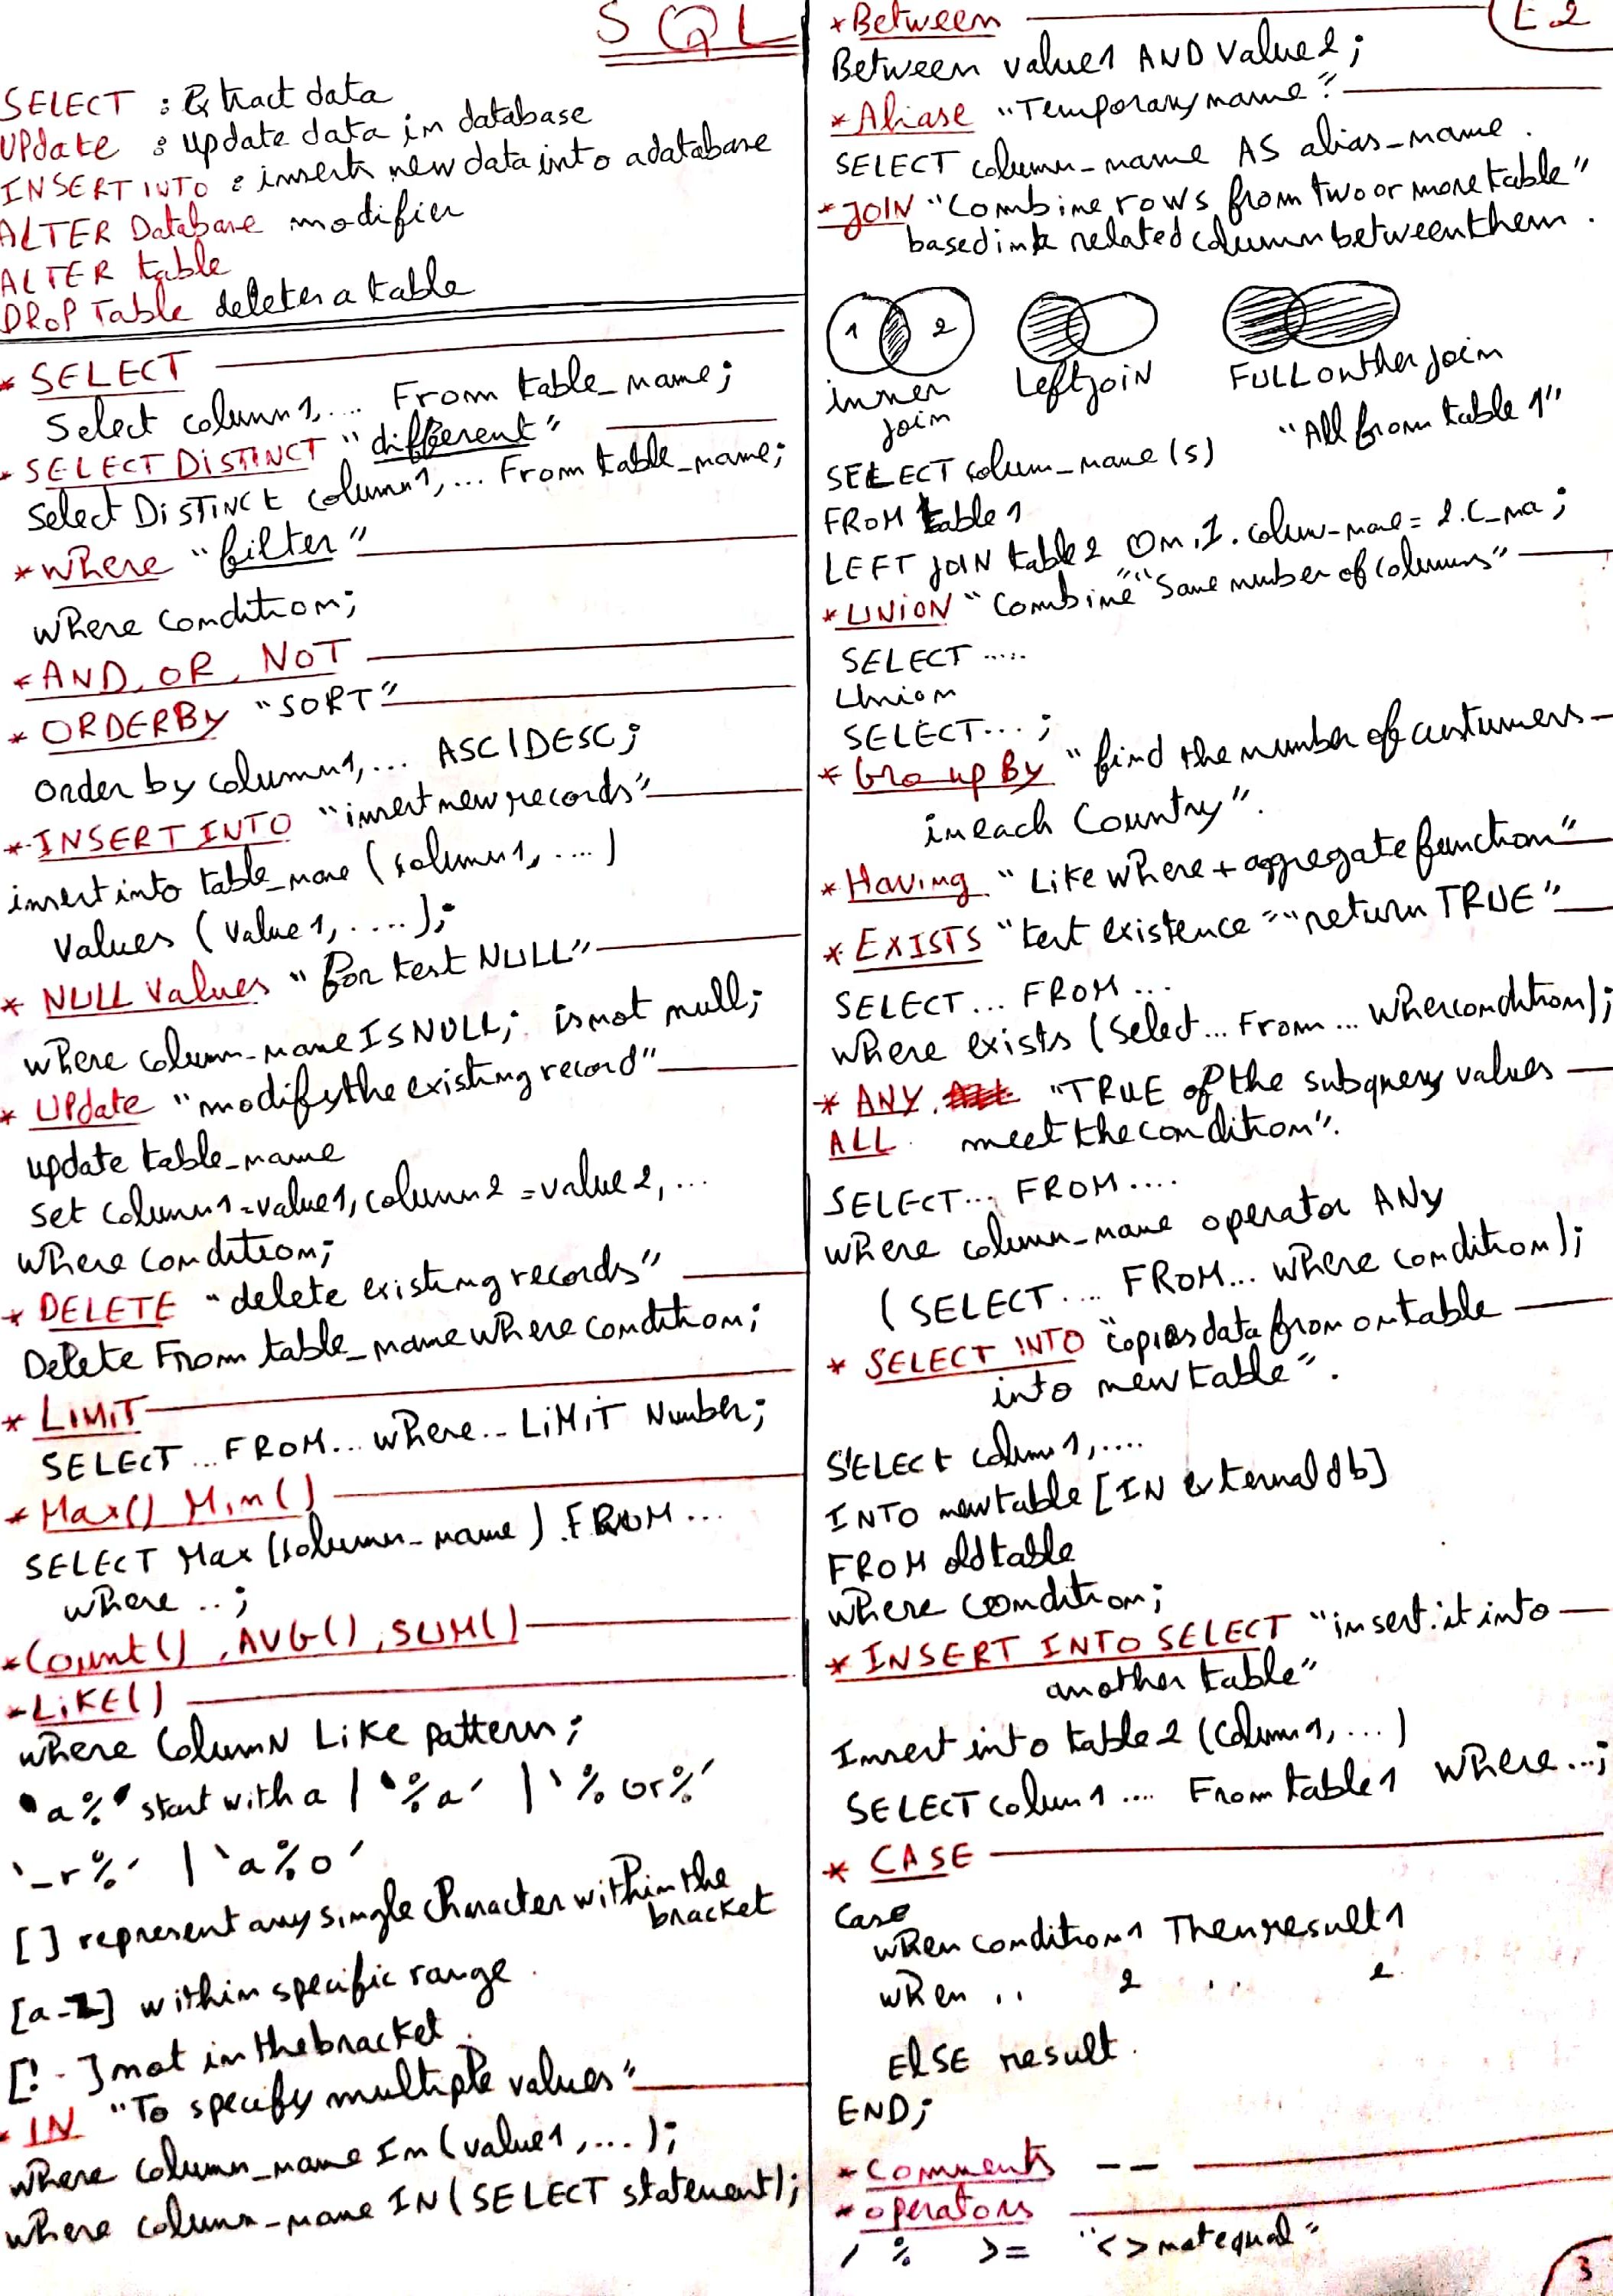 SQL
SELECT : Extract data
UPdate : update data in database
INSERT INTO : inserts new data into a database
ALTER Database modifier
ALTER table
DROP Table deletes a table
* SELECT
Select column1,... From table_name;
* SELECT DISTINCT "different"
Select DISTINCT column1,... From table_name;
* Where "filter"
Where condition;
* AND, OR, NOT
* ORDER BY "SORT"
Order by column1,... ASC|DESC;
* INSERT INTO "insert new records"
insert into table_name (column1,....)
Values (value1,....);
* NULL Values "For test NULL"
Where column_name IS NULL; is not null;
* UPdate "modify the existing record"
update table_name
Set column1=value1, column2=value2,...
Where condition;
* DELETE "delete existing records"
Delete From table_name where condition;
* LIMIT
SELECT ... FROM... Where... LIMIT Number;
* Max() Min()
SELECT Max (column_name) FROM...
Where ..;
* Count(), AVG(), SUM()
* LIKE()
Where Column Like pattern;
'a%' start with a | '%a' | '%or%'
'_r%' | 'a%o'
[] represent any single character within the
bracket
[a-z] within specific range.
[! - ] not in the bracket.
* IN "To specify multiple values"
Where column_name In (value1,...);
Where column_name IN (SELECT statement);
E2
* Between
Between value1 AND value2;
* Aliase "Temporary name"
SELECT column_name AS alias_name.
* JOIN "Combine rows from two or more table"
based in a related column between them.
1 2
inner
join
Left join
FULL outher join
SELECT colum_name(s) "All from table 1"
FROM table 1
LEFT JOIN table 2 On 1.colum_name = 2.C_na;
* UNION "Combine" "Same number of columns"
SELECT .....
Union
SELECT...;
* Group By "find the number of custumers
in each Country".
* Having "Like Where + aggregate function"
* EXISTS "test existence" "return TRUE"
SELECT... FROM...
Where exists (Select... From... Where condition);
* ANY, "TRUE of the subquery values
ALL meet the condition".
SELECT... FROM....
Where column_name operator ANY
(SELECT.... FROM... Where condition);
* SELECT INTO "copies data from on table
into new table".
SELECT colum1,....
INTO newtable [IN externaldb]
FROM oldtable
Where condition;
* INSERT INTO SELECT "insert it into
another table"
Insert into table 2 (Colum1,...)
SELECT colum1 .... From table1 Where...;
* CASE
Case
When condition1 Then result1
When .. 2 .. 2
ElSE result.
END;
* Comments --
* operators
/ % >= "<> not equal"
3